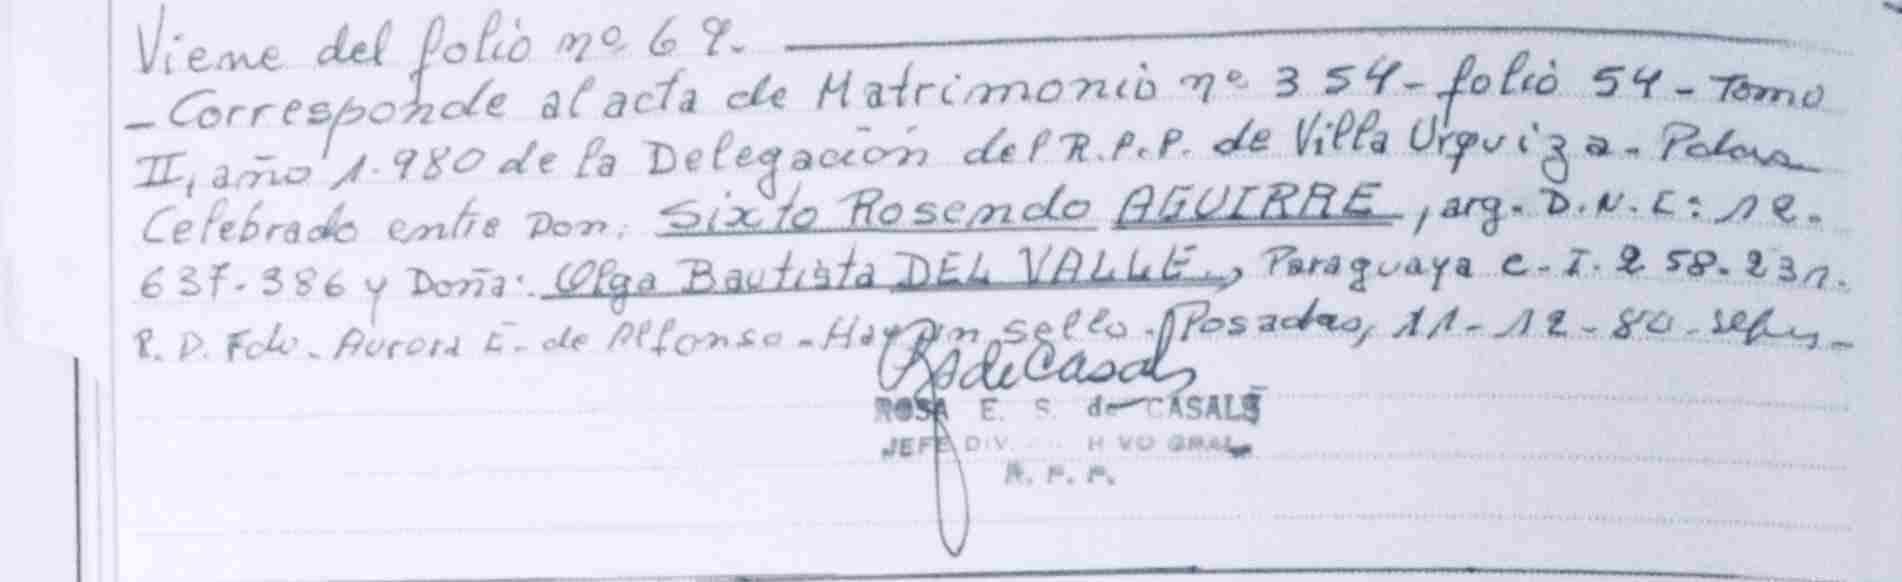 Viene del folio nº 69.
- Corresponde al acta de Matrimonio nº 354 - folio 54 - Tomo
II, año 1.980 de la Delegación del R.P.P. de Villa Urquiza - Pdas
Celebrado entre Don: Sixto Rosendo AGUIRRE, arg. D.N.I: 12.
637.386 y Doña: Olga Bautista DEL VALLE., Paraguaya C.I. 258.231.
R.D. Fdo. Aurora E. de Alfonso - Hay un sello. Posadas, 11-12-80.
RS de Casals
ROSA E. S. de CASALS
JEFE DIV. H VO GRAL
R. P. P.